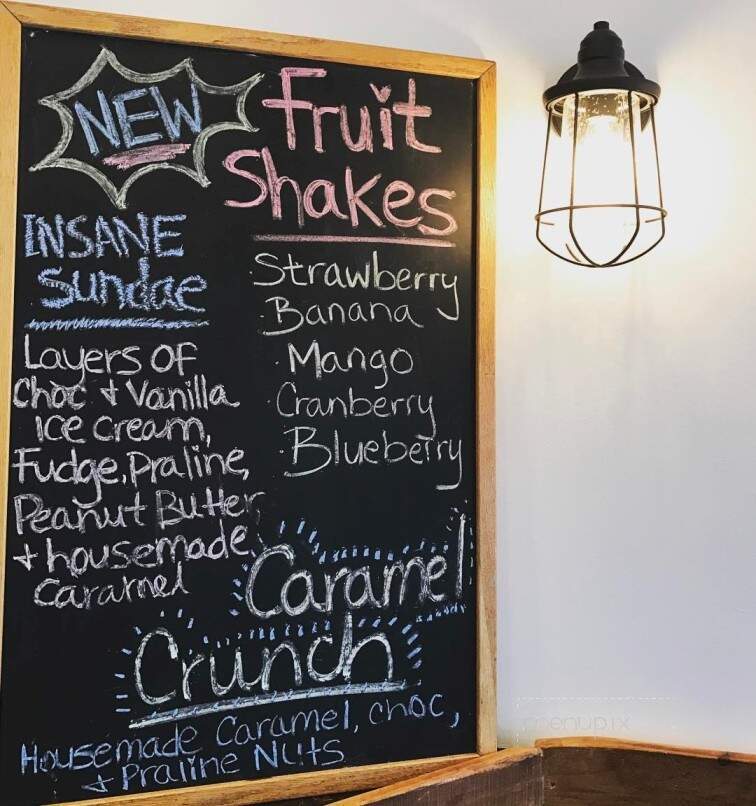 NEW
Fruit
Shakes
INSANE
Sundae
Layers OF
Choc + Vanilla
Ice Cream,
Fudge, Praline,
Peanut Butter
+ housemade
caramel
· Strawberry
· Banana
· Mango
· Cranberry
· Blueberry
Caramel
Crunch
Housemade Caramel, choc,
+ Praline Nuts